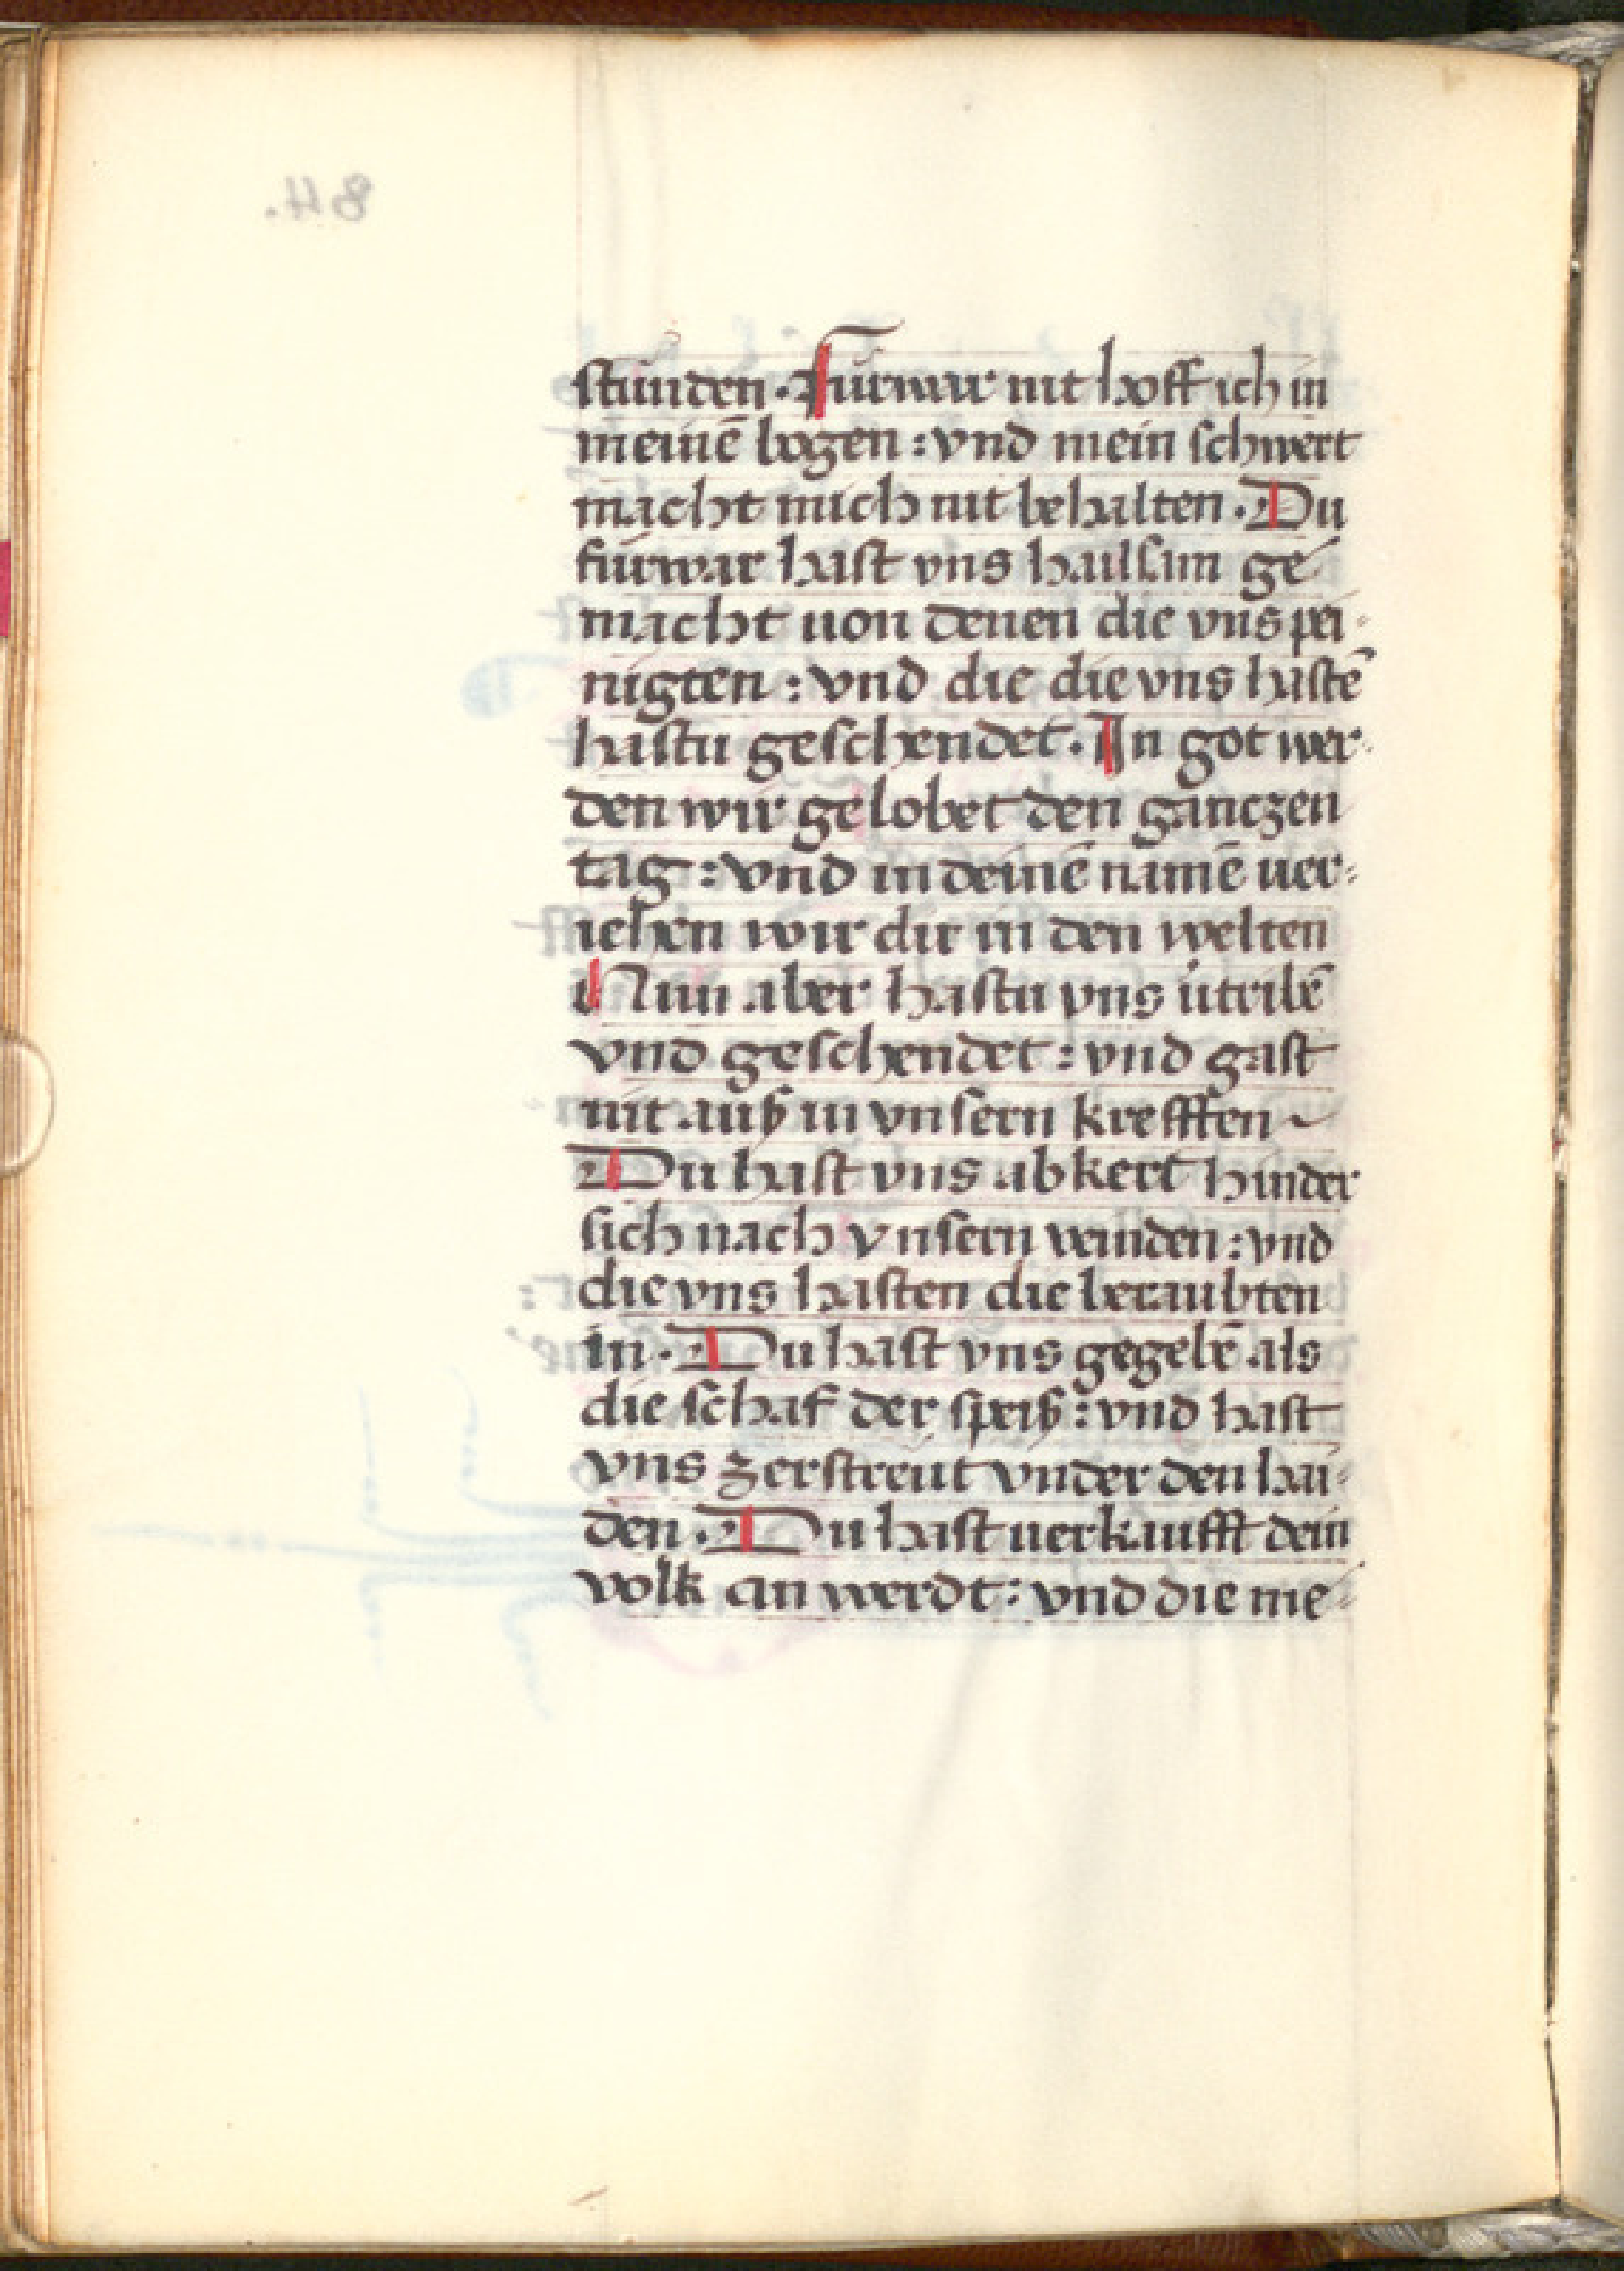 stunden · Furwar nit hoff ich in
meinē bogen : vnd mein schwert
macht mich nit behalten · Du
furwar hast vns hailsam ge-
macht uon denen die vns pei-
nigten : vnd die die vns hastē
hastu geschendet · In got wer-
den wir gelobet den ganczen
tag : vnd in deinē namē uer-
iehen wir dir in den welten
Nun aber hastu vns utribē
vnd geschendet : vnd gast
nit auß in vnsern krefften
Du hast vns abkert hinder
sich nach vnsern veinden : vnd
die vns hasten die beraubten
in · Du hast vns gegebē als
die schaf der speiß : vnd hast
vns zerstreut vnder den hai-
den · Du hast uerkaufft dein
volk an werdt : vnd die me-